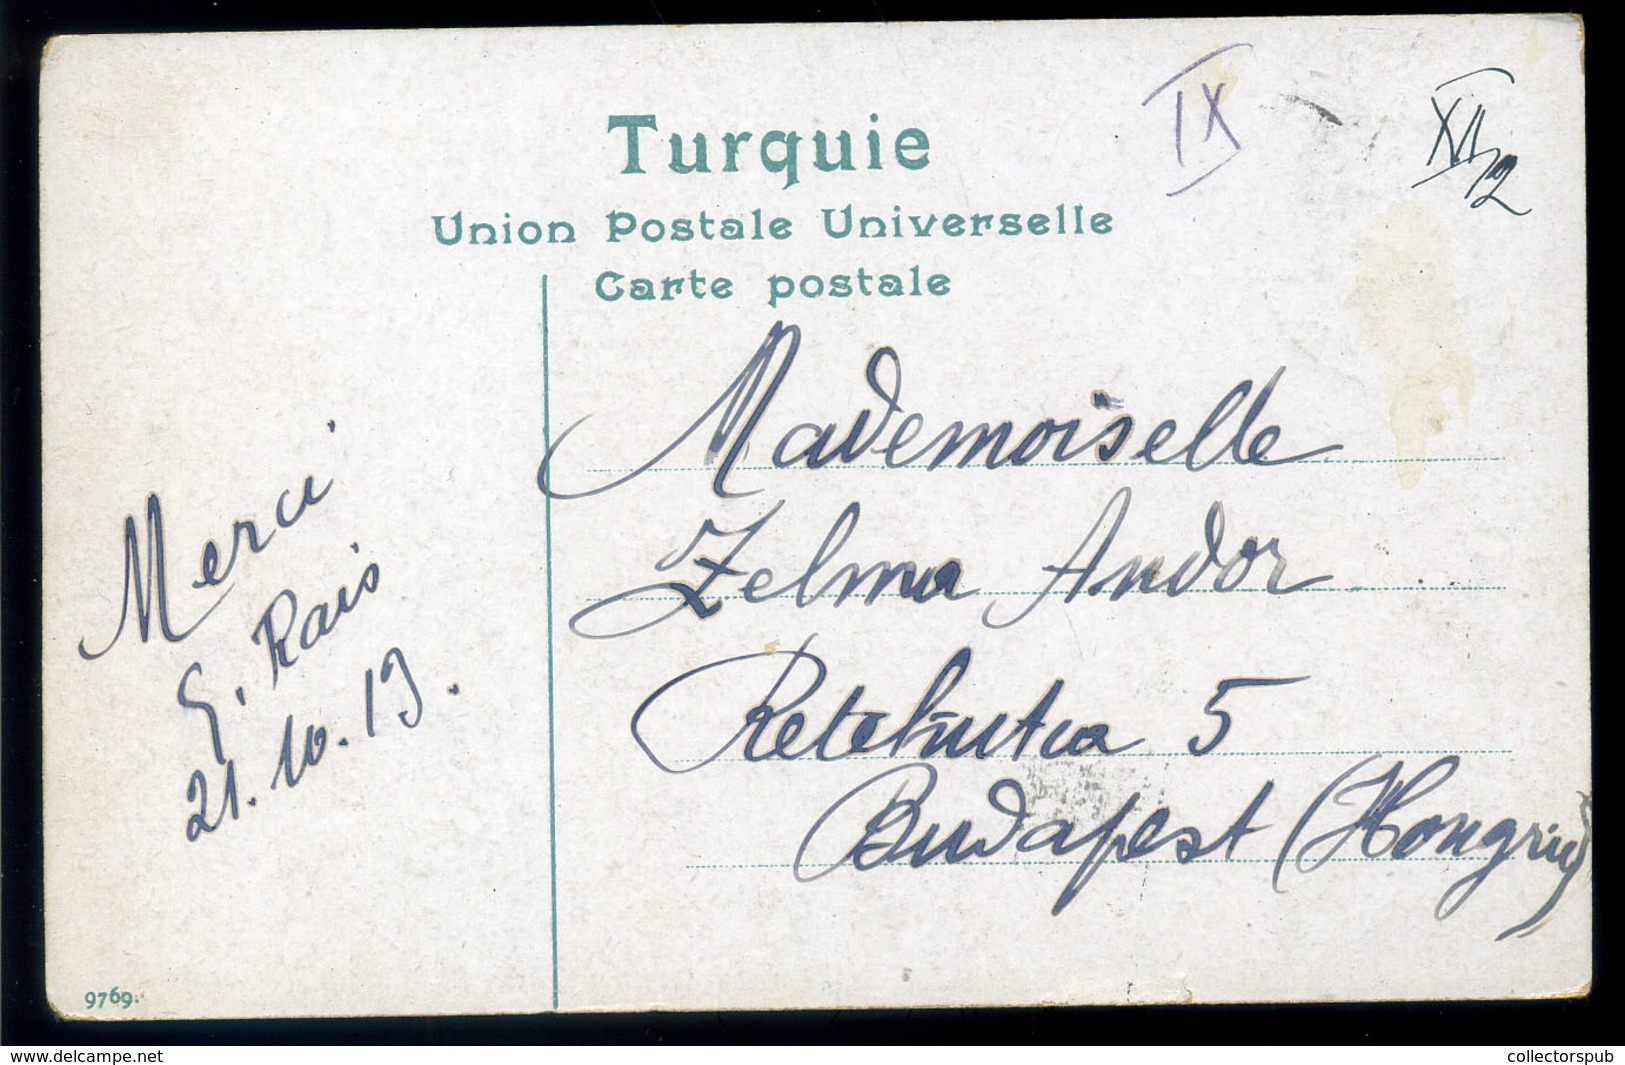 Turquie
Union Postale Universelle
Carte postale
IX
XII/2
Mademoiselle
Zelma Andor
5
Budapest (Hongrie)
Merci
G. Rais
21. 10. 19.
9769.
www.delcampe.net
collectorspub